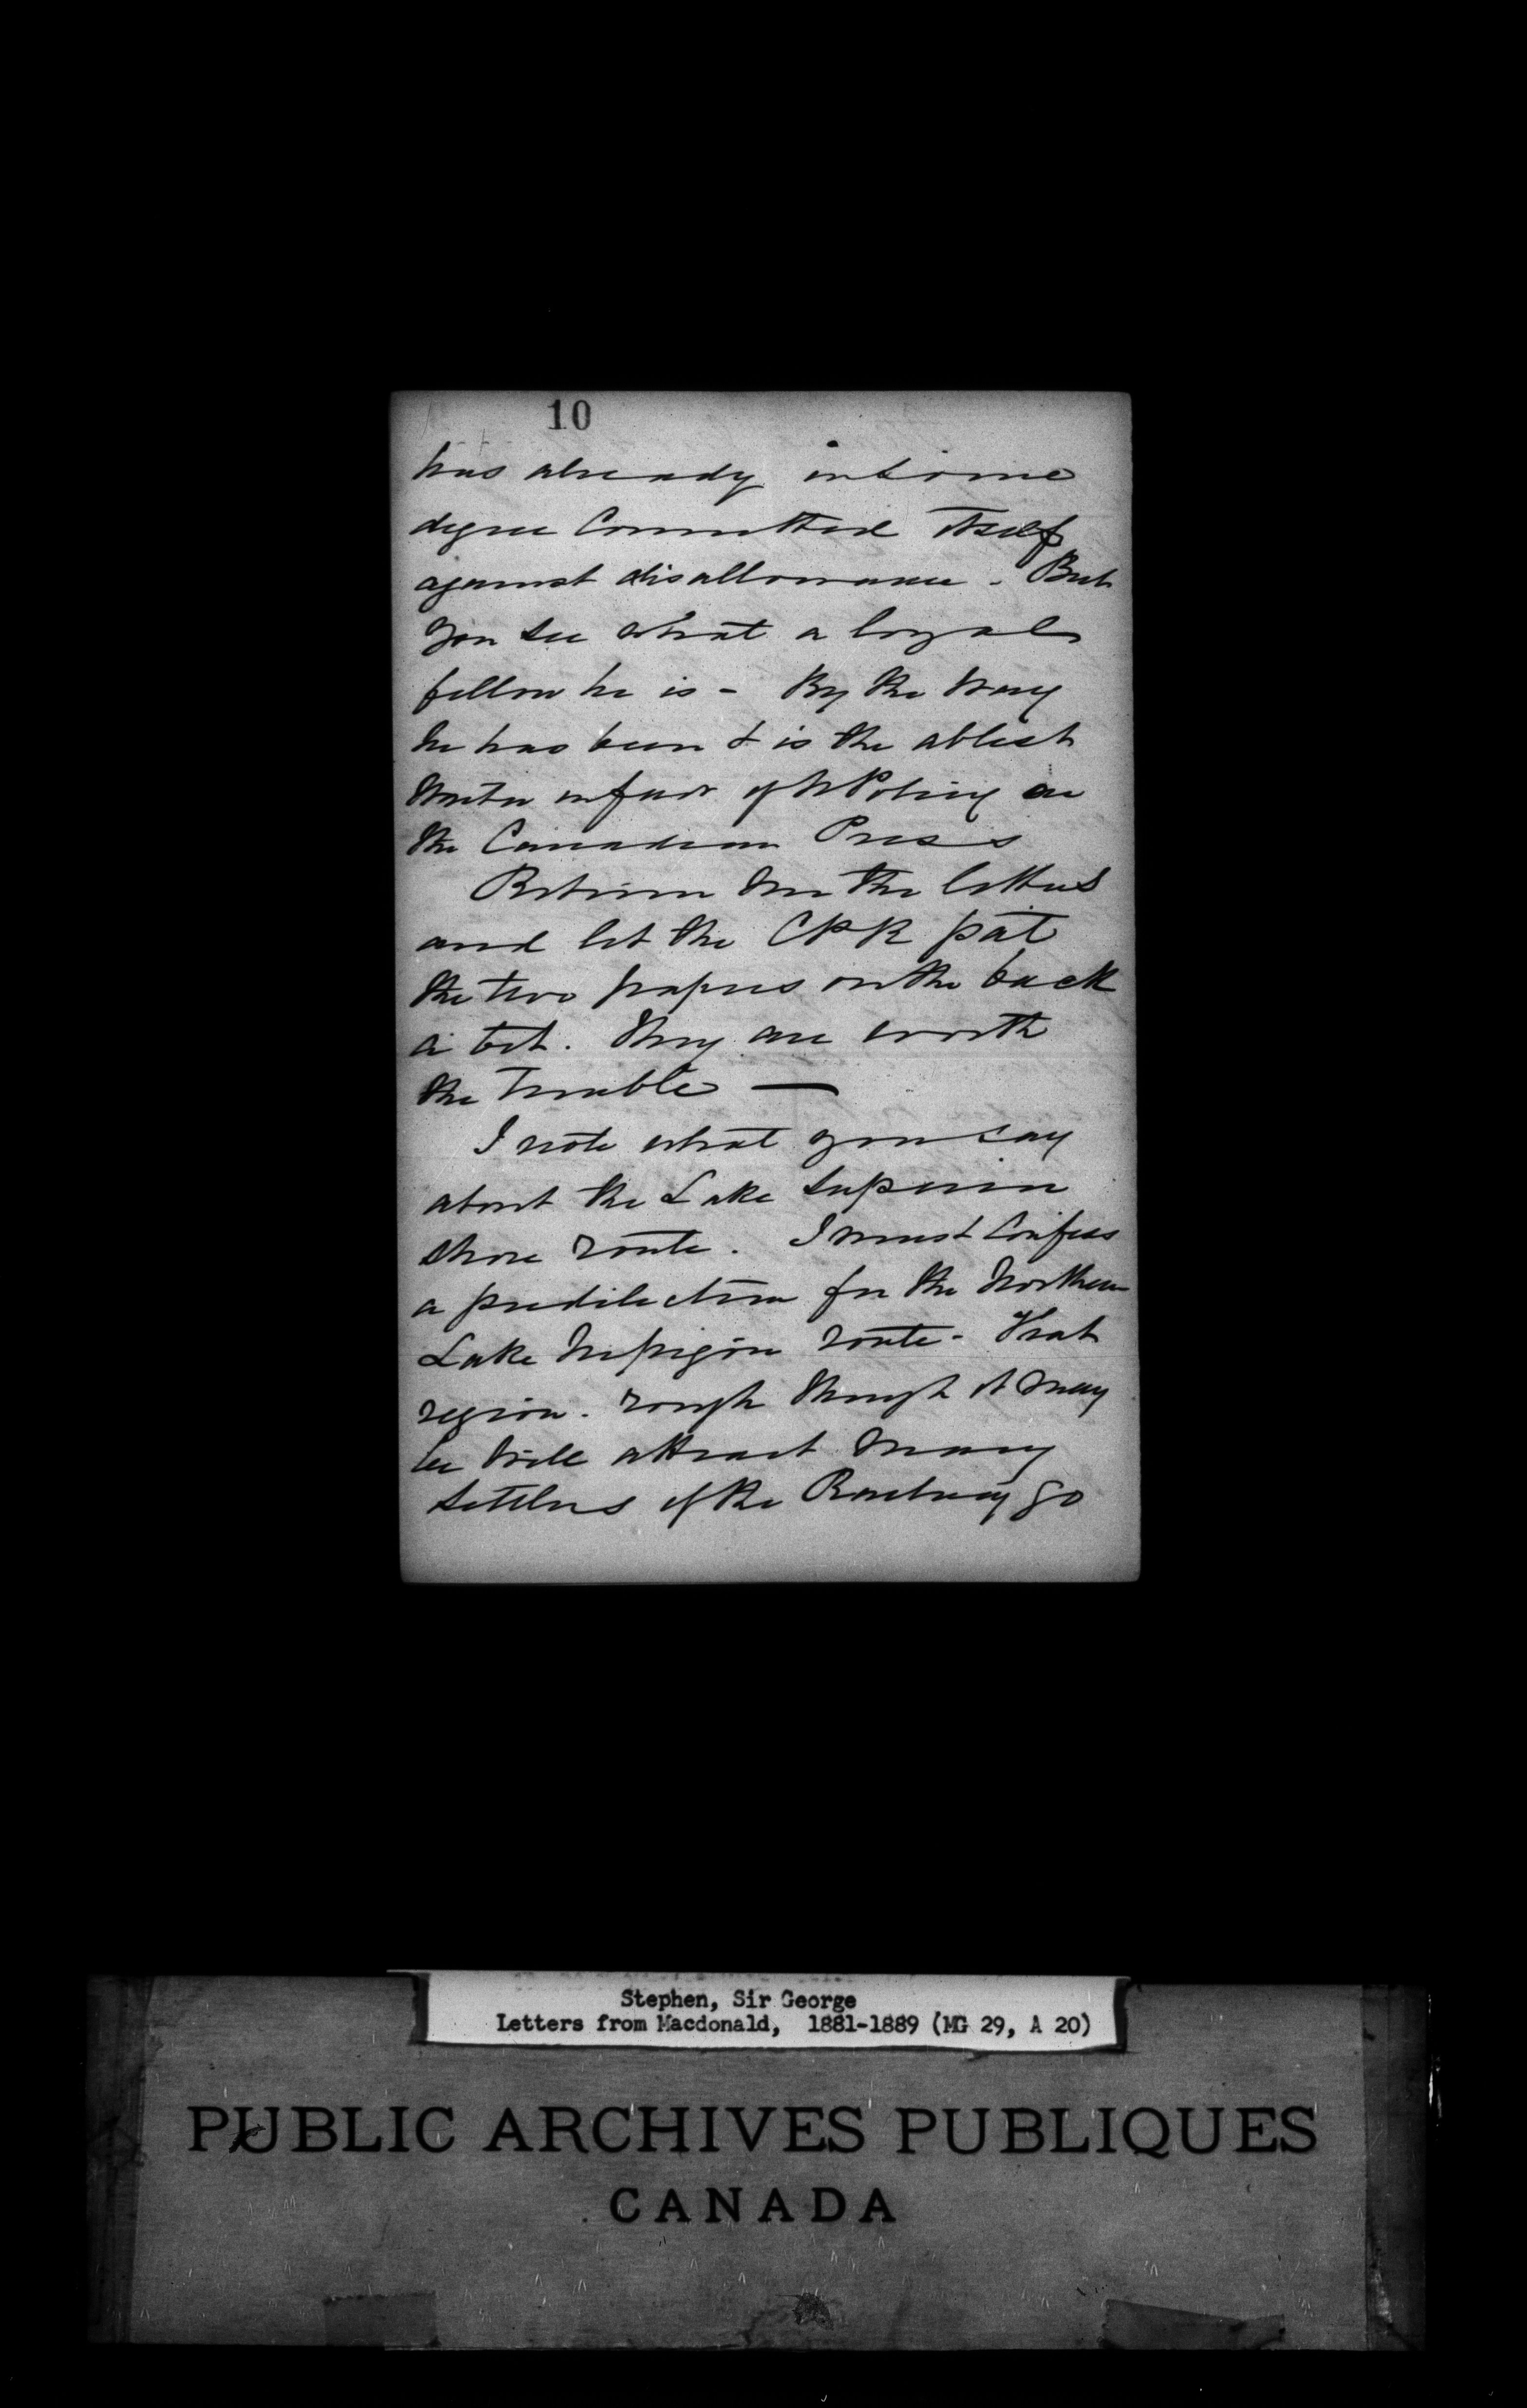 10
has already in some
degree Committed itself
against disallowance - But
you see what a loyal
fellow he is - By the way
he has been & is the ablest
writer in favor of N Policy on
the Canadian Press
Return me the letters
and let the CPR pat
the two papers on the back
a bit. They are worth
the trouble —
I note what you say
about the Lake Superior
shore route. I must confess
a predilection for the Northern
Lake Nepigon route - That
region - rough though it may
be will attract many
settlers if the Railway go
Stephen, Sir George
Letters from Macdonald, 1881-1889 (MG 29, A 20)
PUBLIC ARCHIVES PUBLIQUES
CANADA